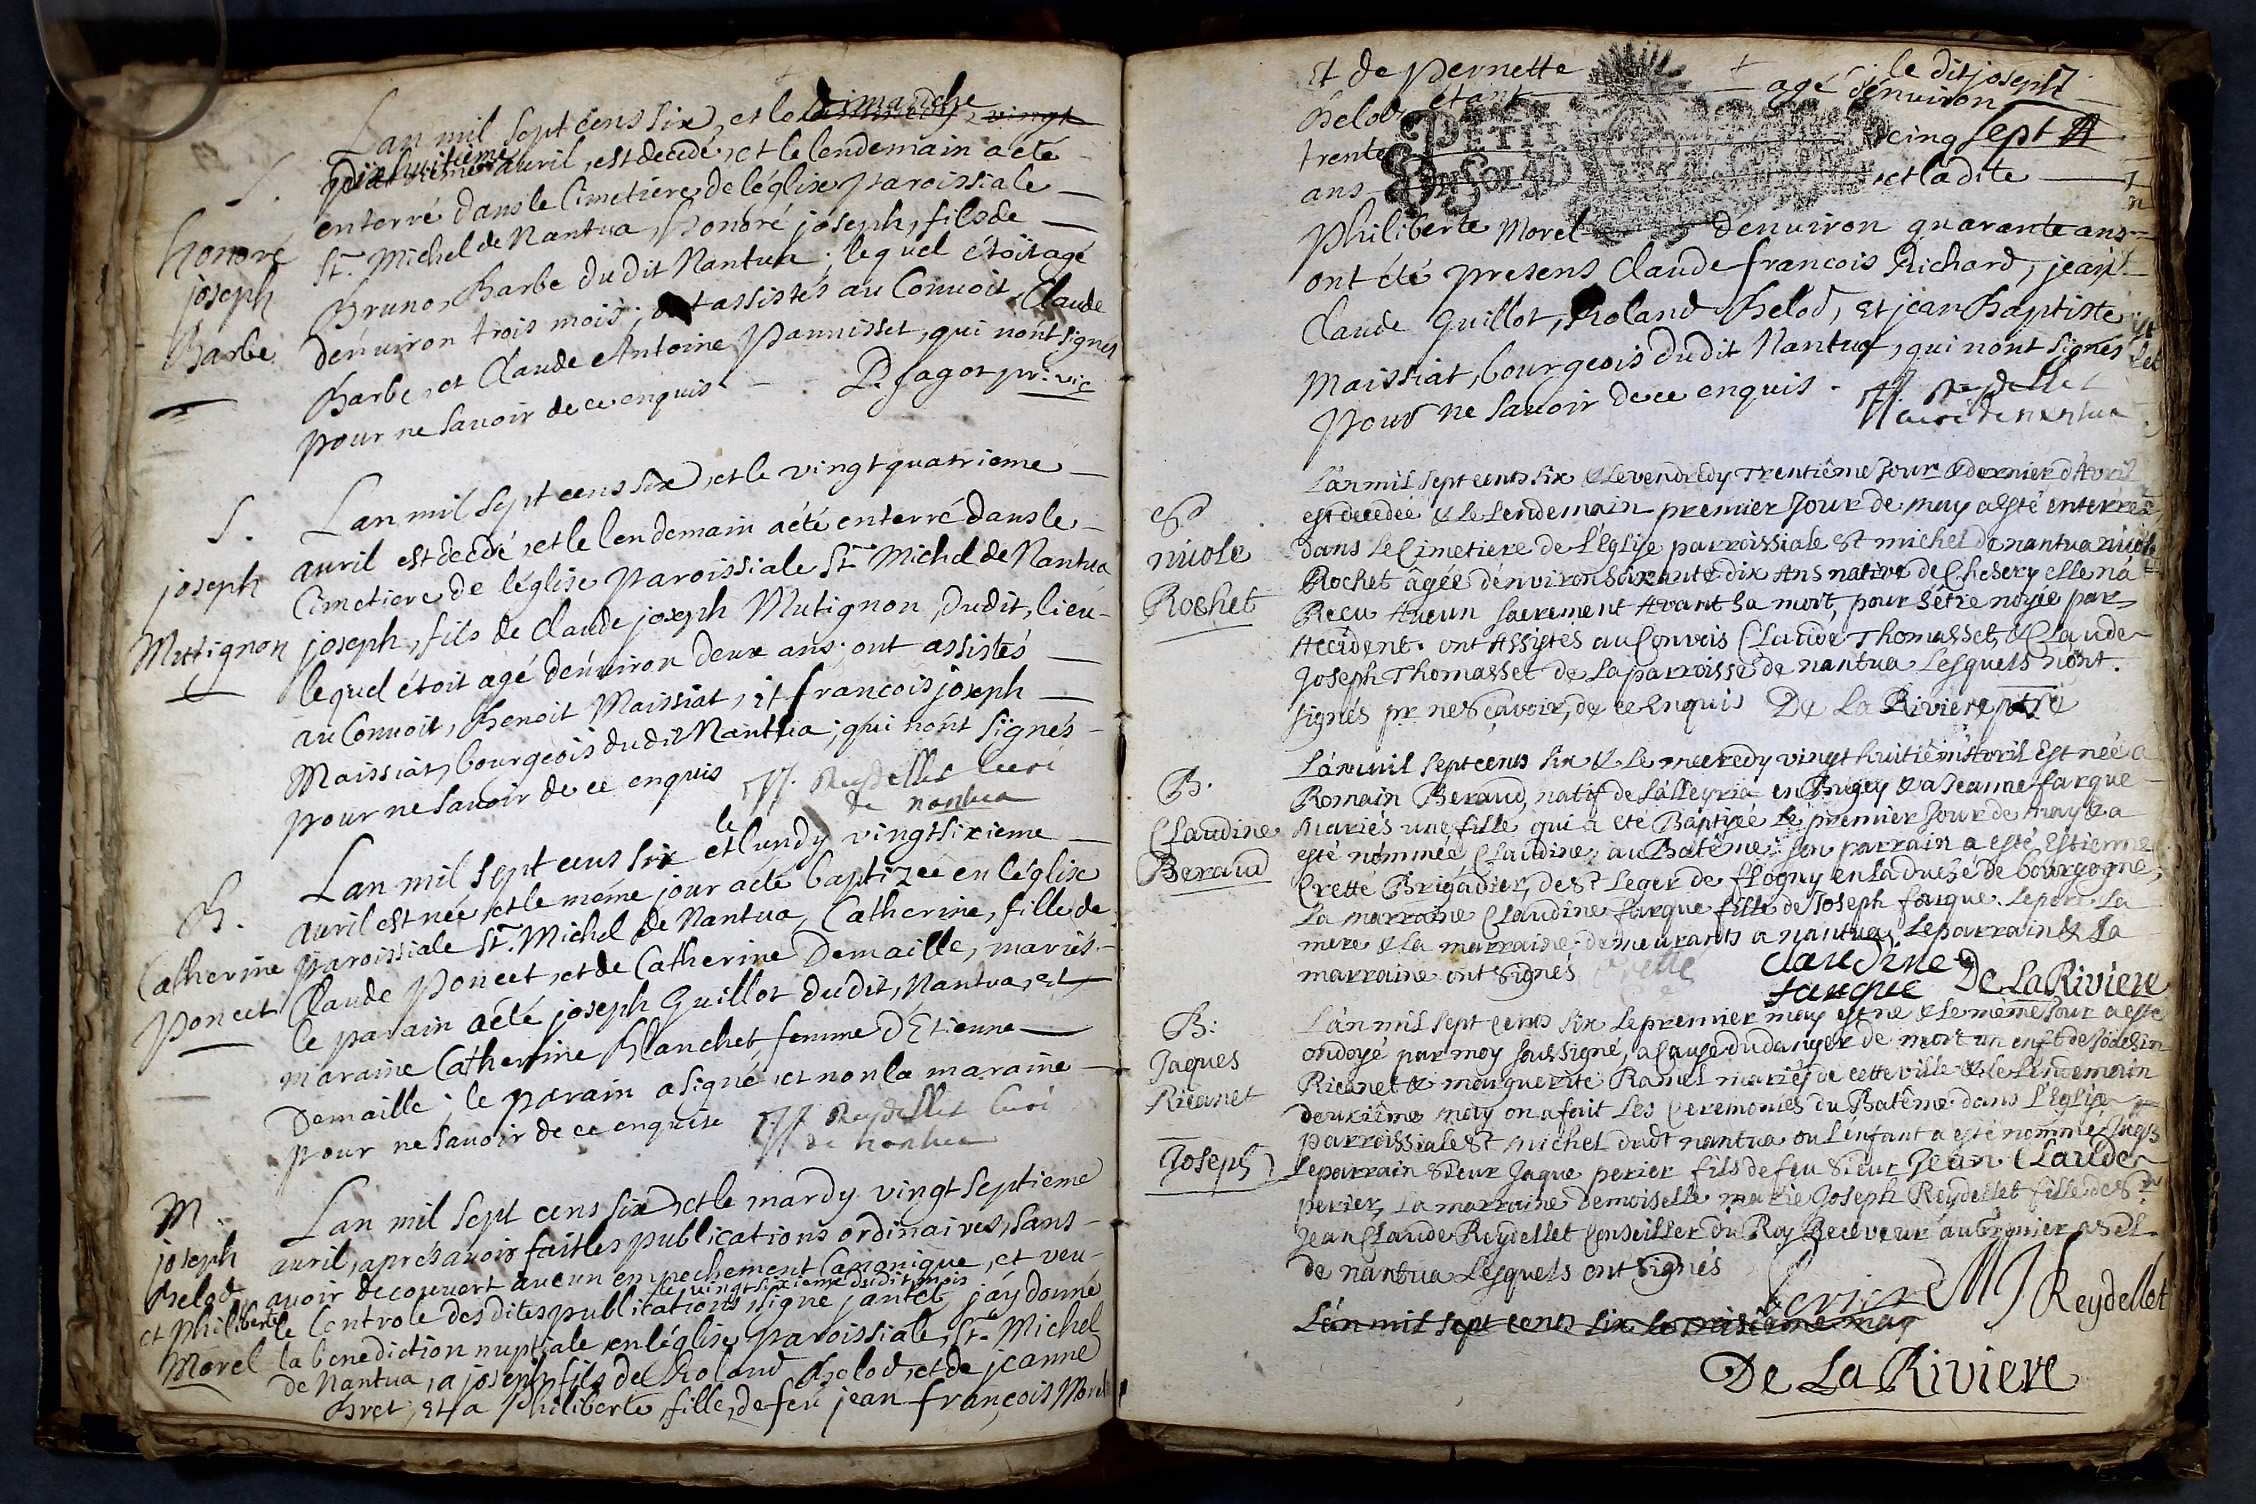 Lan mil sept cens six, et le dimanche vingt
dixhuitieme avril, est decedé, et le lendemain a eté
enterré dans le Cimetiere de léglise Paroissiale
St. Michel de Nantua, honoré joseph, fils de
Bruno Barbe dudit Nantua; lequel étoit agé
dénuiron trois mois; ont assistés au Conuoit Claude
Barbe, et Claude Antoine Pannisset, qui nont signes
pour ne sauoir de ce enquis - P. Jagot pr. vic
S.
honoré
joseph
Barbe
Lan mil sept cens six, et le vingt quatrieme
auril est decedé, et le lendemain a été enterré dans le
Cimetiere de léglise Paroissiale St. Michel de Nantua
joseph, fils de Claude joseph Mutignon, dudit, lieu
lequel étoit agé dénuiron deux ans; ont assistés
au Conuoit, Benoit Maissiat, et francois joseph
Maissiat, bourgeois dudit Nantua; qui nont signés
pour ne sauoir de ce enquis Reydellet Curé
de nantua
S.
joseph
Mutignon
Lan mil sept cens six et le lundy vingtsixieme
auril est née, et le méme jour a été baptizée en léglise
paroissiale St. Michel de Nantua, Catherine, fille de
Claude Poncet, et de Catherine Demaille, mariés
le parain a été joseph Guillot dudit, Nantua, et
maraine Catherine Blanchet femme d'Etienne
Demaille; le parain a signé, et non la maraine
pour ne sauoir de ce enquise Reydellet Curé
de nantua
B.
Catherine
Poncet
Lan mil sept cens six, et le mardy vingt septieme
auril, aprés auoir fait les publications ordinaires, sans
auoir decouuert aucun empechement Canonique, et veu
le vingt sixieme dudit mois
le Controle desdites publications signe jantet, jáy donné
la benediction nuptiale en léglise paroissiale, St. Michel
de Nantua, a joseph fils de Roland Belod, et de jeanne
Bret, et a Philiberte, fille, de feu jean françois Morel
M.
joseph
Belod
et Philiberte
Morel
Et de Pernette le dit joseph
Belod étant agé dénuiron
trente cinq sept
ans et la dite
PETIT
Philiberte Morel dénuiron quarante ans
ont été presens Claude francois Richard, jean
Claude Guillot, Roland Belod, et jean Baptiste
Maissiat, bourgeois dudit Nantua, qui nont signés
Pour ne sauoir de ce enquis. Reydellet
Curé de nantua
L'an mil sept cents six & le vendredy trentiême jour & dernier d'Avril
est decedée & le lendemain premier jour de may a esté enterrée
dans le Cimetiere de l'Eglise parroissiale st michel de nantua nicole
Rochet âgée d'environ soixante dix ans native de Chesery elle n'a
Reçu Aucun sacrement Avant sa mort, pour s'être noyée par
Accident. ont Assistés au Convois Claude Thomasset, & Claude
Joseph Thomasset de la parroisse de nantua Lesquels n'ont.
signés pr ne sçavoir, de ce Enquis De La Riviere ptre
Sp
nicole
Rochet
L'an mil sept cents six & le mecredy vingt huitiém Avril Est née a
Romain Beraud, natif de Lalleyria en Bugey & a Jeanne farque
mariés une fille qui a eté Baptisée le premier jour de may & a
esté nommée Claudine, au Batême: son parrain a esté Estienne
Crette Brigadier, de St Leger de flogny en la duché de bourgogne,
La marraine Claudine farque fille de Joseph farque. Le pere La
mere & La marraine demeurants a nantua Le parrain & La
marraine ont signés Crette Claudine farque De La Riviere
B.
Claudine
Beraud
L'an mil sept cents six le premier may est né & le même jour a esté
ondoyé par moy soussigné, a cause du danger de mort un enft de
Ricanet & marguerite Ramel mariés de cette ville & le lendemain
deuxiême may on a fait les Ceremonies du Batême dans l'Eglise
parroissiale St michel dudt nantua ou l'enfant a esté nommé
le parrain sieur Jaque perier fils de feu sieur Jean Claude
perier, La marraine demoiselle marie Joseph Reydellet fille de Sr
Jean Claude Reydellet Conseiller du Roy Receveur au Grenier a sel
de nantua Lesquels ont signés
B:
Jaques
Ricanet
Joseph
perier M J Reydellet
L'an mil sept cents six le troisiême may
De La Riviere